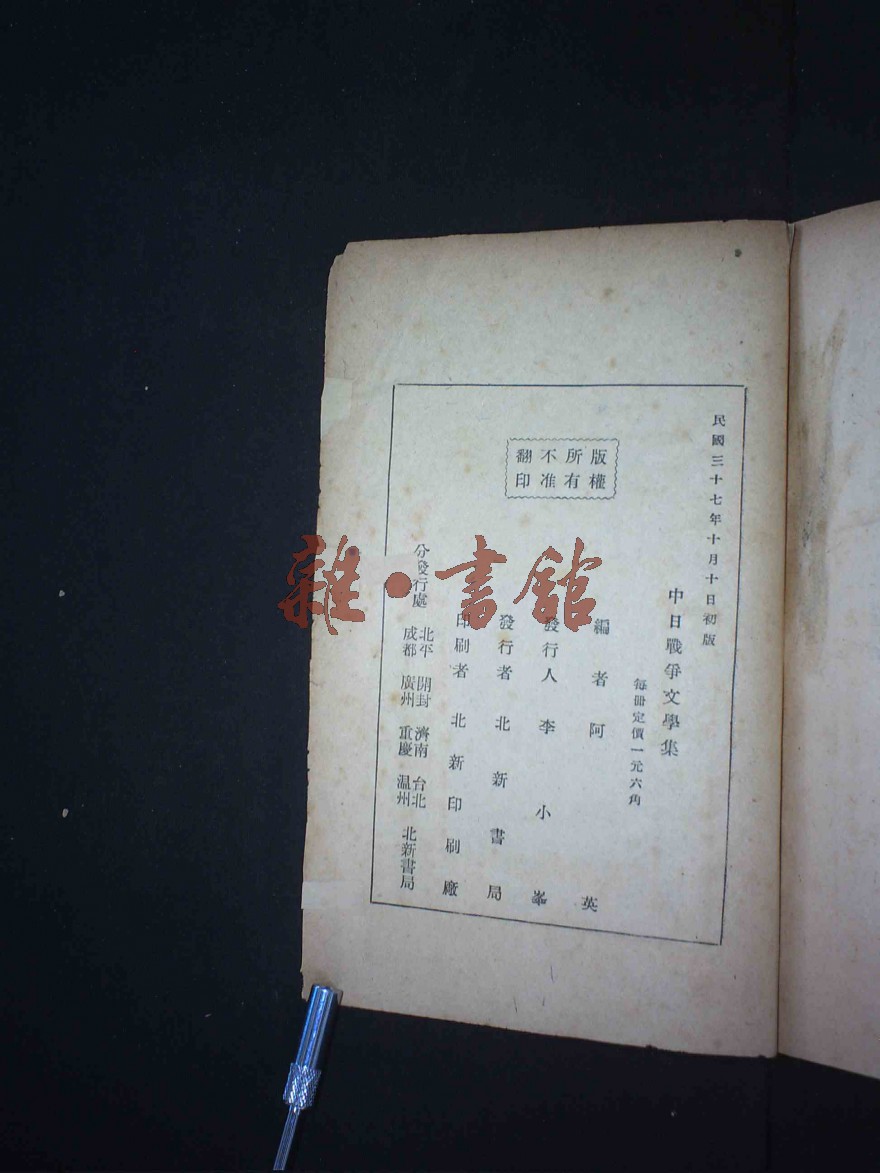 民國三十七年十月十日初版
中日戰爭文學集
每冊定價一元六角
版權
所有
不准
翻印
編者阿英
發行人李小峯
發行者北新書局
印刷者北新印刷廠
分發行處
北平 開封 濟南 台北
成都 廣州 重慶 溫州
北新書局
雜·書館